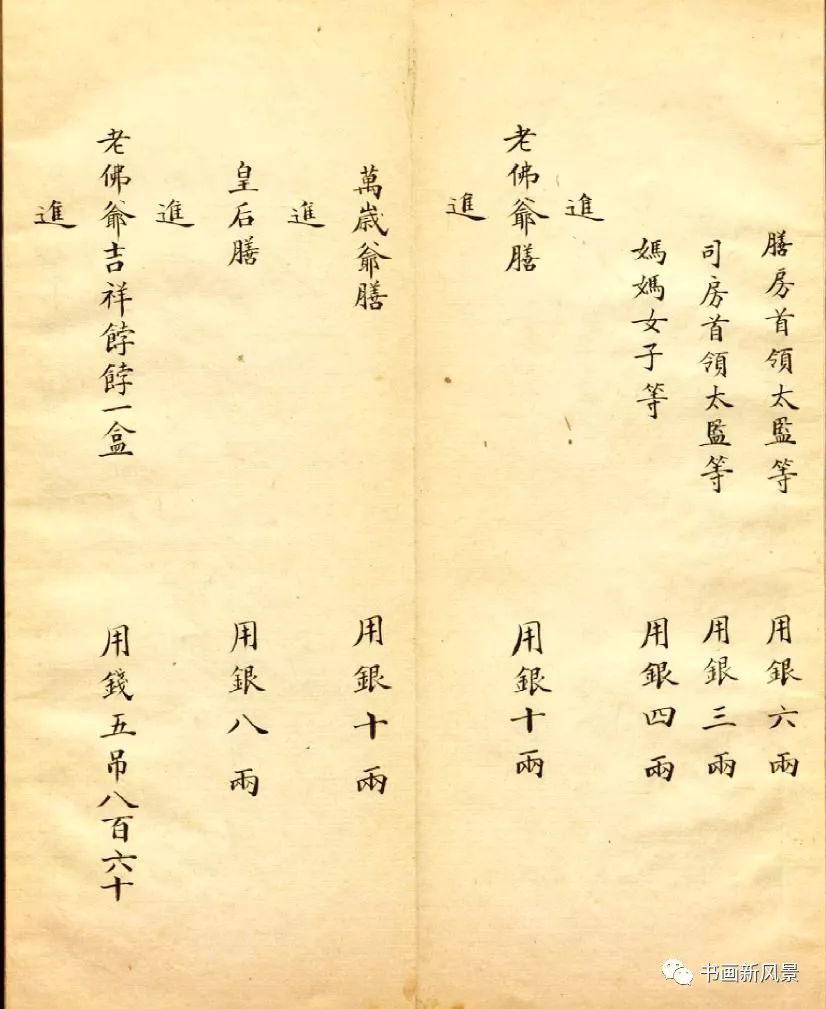 膳房首領太監等　用銀六兩
司房首領太監等　用銀三兩
媽媽女子等　用銀四兩
進
老佛爺膳　用銀十兩
進
萬歲爺膳　用銀十兩
進
皇后膳　用銀八兩
進
老佛爺吉祥餑餑一盒　用錢五吊八百六十
進
书画新风景